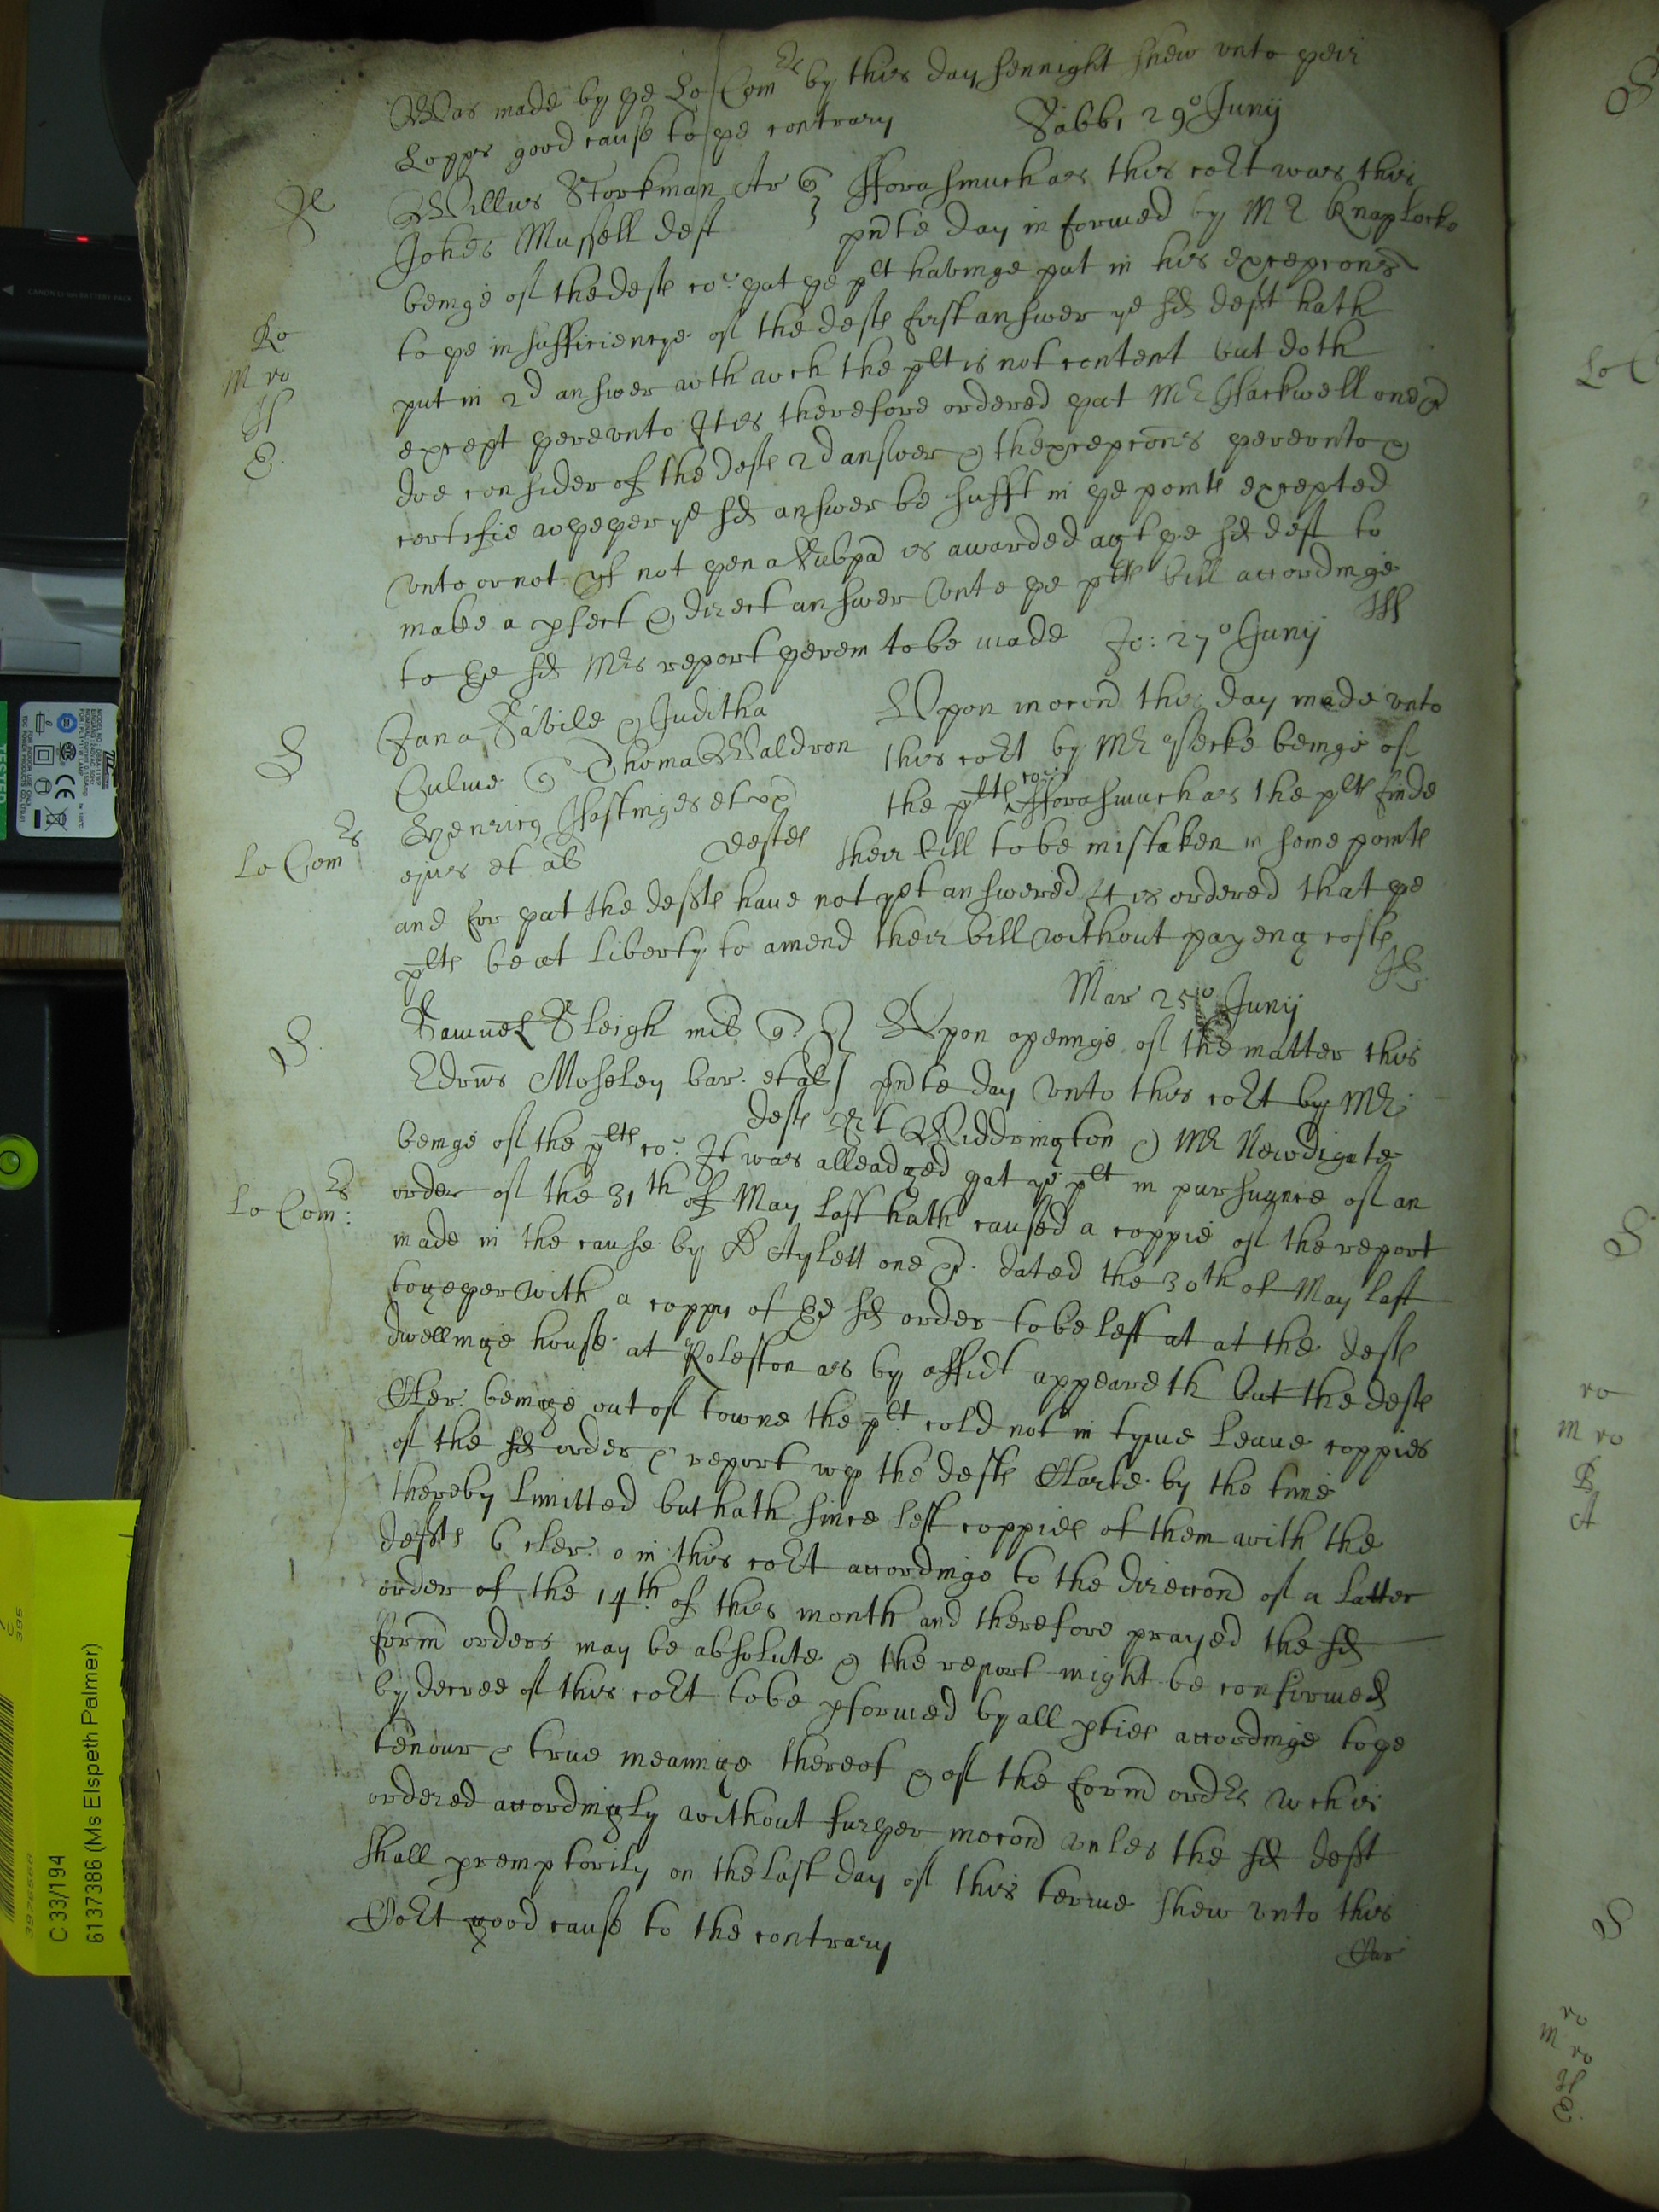 Was made by ye Lo Comrs by this day sennight shew unto yeir
Lopps good cause to ye contrary
Sabbi 29o Junij
Willus Storkman Ar q
fforasmuch as this cort was this
Johes Mussell deft
pnte day informed by Mr Knaplocke
beinge of the defts co: yat ye plt havinge put in his excepcons
to ye insufficiencye of the defts first answer ye sd deft hath
put in 2d answer wth wch the plt is not content but doth
except yereunto It is therefore ordered yat Mr Hackwell one &
doe consider of the defts 2d answer & thexcepcons yereunto &
certifie wheyer ye sd answer be sufft in ye points excepted
unto or not yf not yen a Subpa is awarded agt ye sd deft to
make a pfect & direct answer unto ye plts bill accordinge
to ye sd Mrs report yerein to be made
Jo: 27o Junij
Jana Sabile & Juditha
Upon mocond this day made unto
Culme q Thoma Waldron
this cort by Mr Pecke beinge of
Henricu Hastinges et ux
the plts co: fforasmuch as the plts finde
ejus et al
defts
their bill to be mistaken in some points
and for yat the defts have not yet answered It is ordered that ye
plts be at liberty to amend their bill without payeng costs
Mar 25o Junij
Samuel Sleigh mil q
Upon openinge of the matter this
Edrus Moseley bar. et al
pnte day unto this cort by Mr
defts
Widdrington & Mr Newdigate
beinge of the plts co: It was alleadged yat ye plt in pursuance of an
order of the 31th of May last hath caused a coppie of the report
made in the cause by D Aylett one &. dated the 30th of May last
togeyer with a coppy of ye sd order to be left at at the defts
dwellinge house at Roleston as by affidt appeareth but the defts
Cler. beinge out of towne the plt cold not in tyme leave coppies
of the sd order & report wth the defts Clarke by the time
thereby limitted but hath since left coppies of them with the
defts 6 cler. in this cort accordinge to the direccond of a latter
order of the 14th of this month and therefore prayed the sd
formr orders may be absolute & the report might be confirmed
by decree of this cort to be pformed by all pties accordinge to ye
tenour & true meaninge thereof & of the formr ordrs wch is
ordered accordingly without furyer mocond unles the sd deft
shall premptorily on the last day of this terme shew unto this
Cort good cause to the contrary
Car
Lo Comrs
Lo Com:
S
S
Ro
m ro
H
ro
m ro
B
A
S
S
ro
m ro
C 33/194
6137386 (Ms Elspeth Palmer)
TESTED